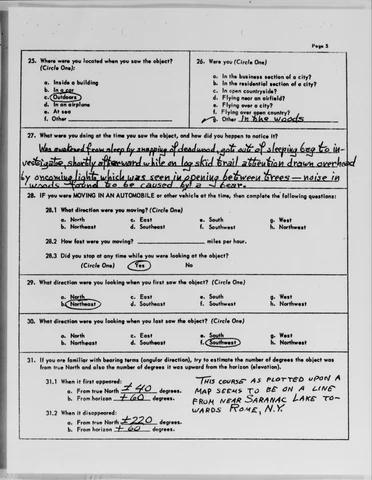 Page 5
25. Where were you located when you saw the object?
(Circle One):
a. Inside a building
b. In a car
c. Outdoors
d. In an airplane
e. At sea
f. Other
26. Were you (Circle One)
a. In the business section of a city?
b. In the residential section of a city?
c. In open countryside?
d. Flying near an airfield?
e. Flying over a city?
f. Flying over open country?
g. Other In the woods
27. What were you doing at the time you saw the object, and how did you happen to notice it?
Was awakened from sleep by snapping of deadwood, got out of sleeping bag to in-
vestigate, shortly afterward while on log skid trail attention drawn overhead
by oncoming light which was seen in opening between trees — noise in
woods found to be caused by a bear.
28. IF you were MOVING IN AN AUTOMOBILE or other vehicle at the time, then complete the following questions:
28.1 What direction were you moving? (Circle One)
a. North c. East e. South g. West
b. Northeast d. Southeast f. Southwest h. Northwest
28.2 How fast were you moving? miles per hour.
28.3 Did you stop at any time while you were looking at the object?
(Circle One) Yes No
29. What direction were you looking when you first saw the object? (Circle One)
a. North c. East e. South g. West
b. Northeast d. Southeast f. Southwest h. Northwest
30. What direction were you looking when you last saw the object? (Circle One)
a. North c. East e. South g. West
b. Northeast d. Southeast f. Southwest h. Northwest
31. If you are familiar with bearing terms (angular direction), try to estimate the number of degrees the object was
from true North and also the number of degrees it was upward from the horizon (elevation).
31.1 When it first appeared:
a. From true North ± 40 degrees.
b. From horizon ± 60 degrees.
31.2 When it disappeared:
a. From true North ± 220 degrees.
b. From horizon ± 60 degrees.
THIS COURSE AS PLOTTED UPON A
MAP SEEMS TO BE ON A LINE
FROM NEAR SARANAC LAKE TO-
WARDS ROME, N.Y.